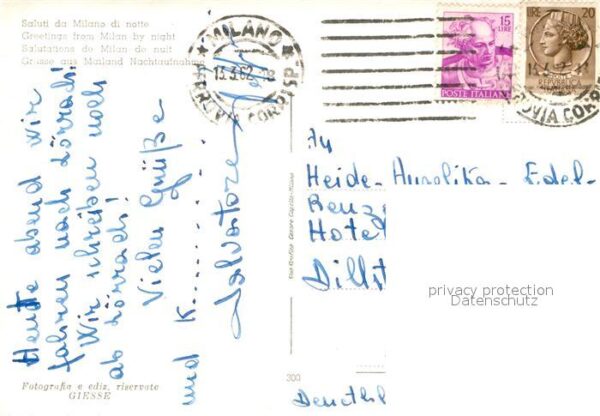 Saluti da Milano di notte
Greetings from Milan by night
Salutations de Milan de nuit
Grüsse aus Mailand Nachtaufnahme
MILANO
13.3.62
FERROVIA CORRISP
15
LIRE
POSTE ITALIANE
20
REPUBBLICA
FERROVIA CORRISP
Heute abend wir
fahren nach Lörrach.
Wir schreiben noch
ab Lörrach!
Vielen Grüße
und K........
Salvatore
An
Heide-
Edel-
Hotel
Dillst
privacy protection
Datenschutz
Fotografia e ediz. riservate
GIESSE
300